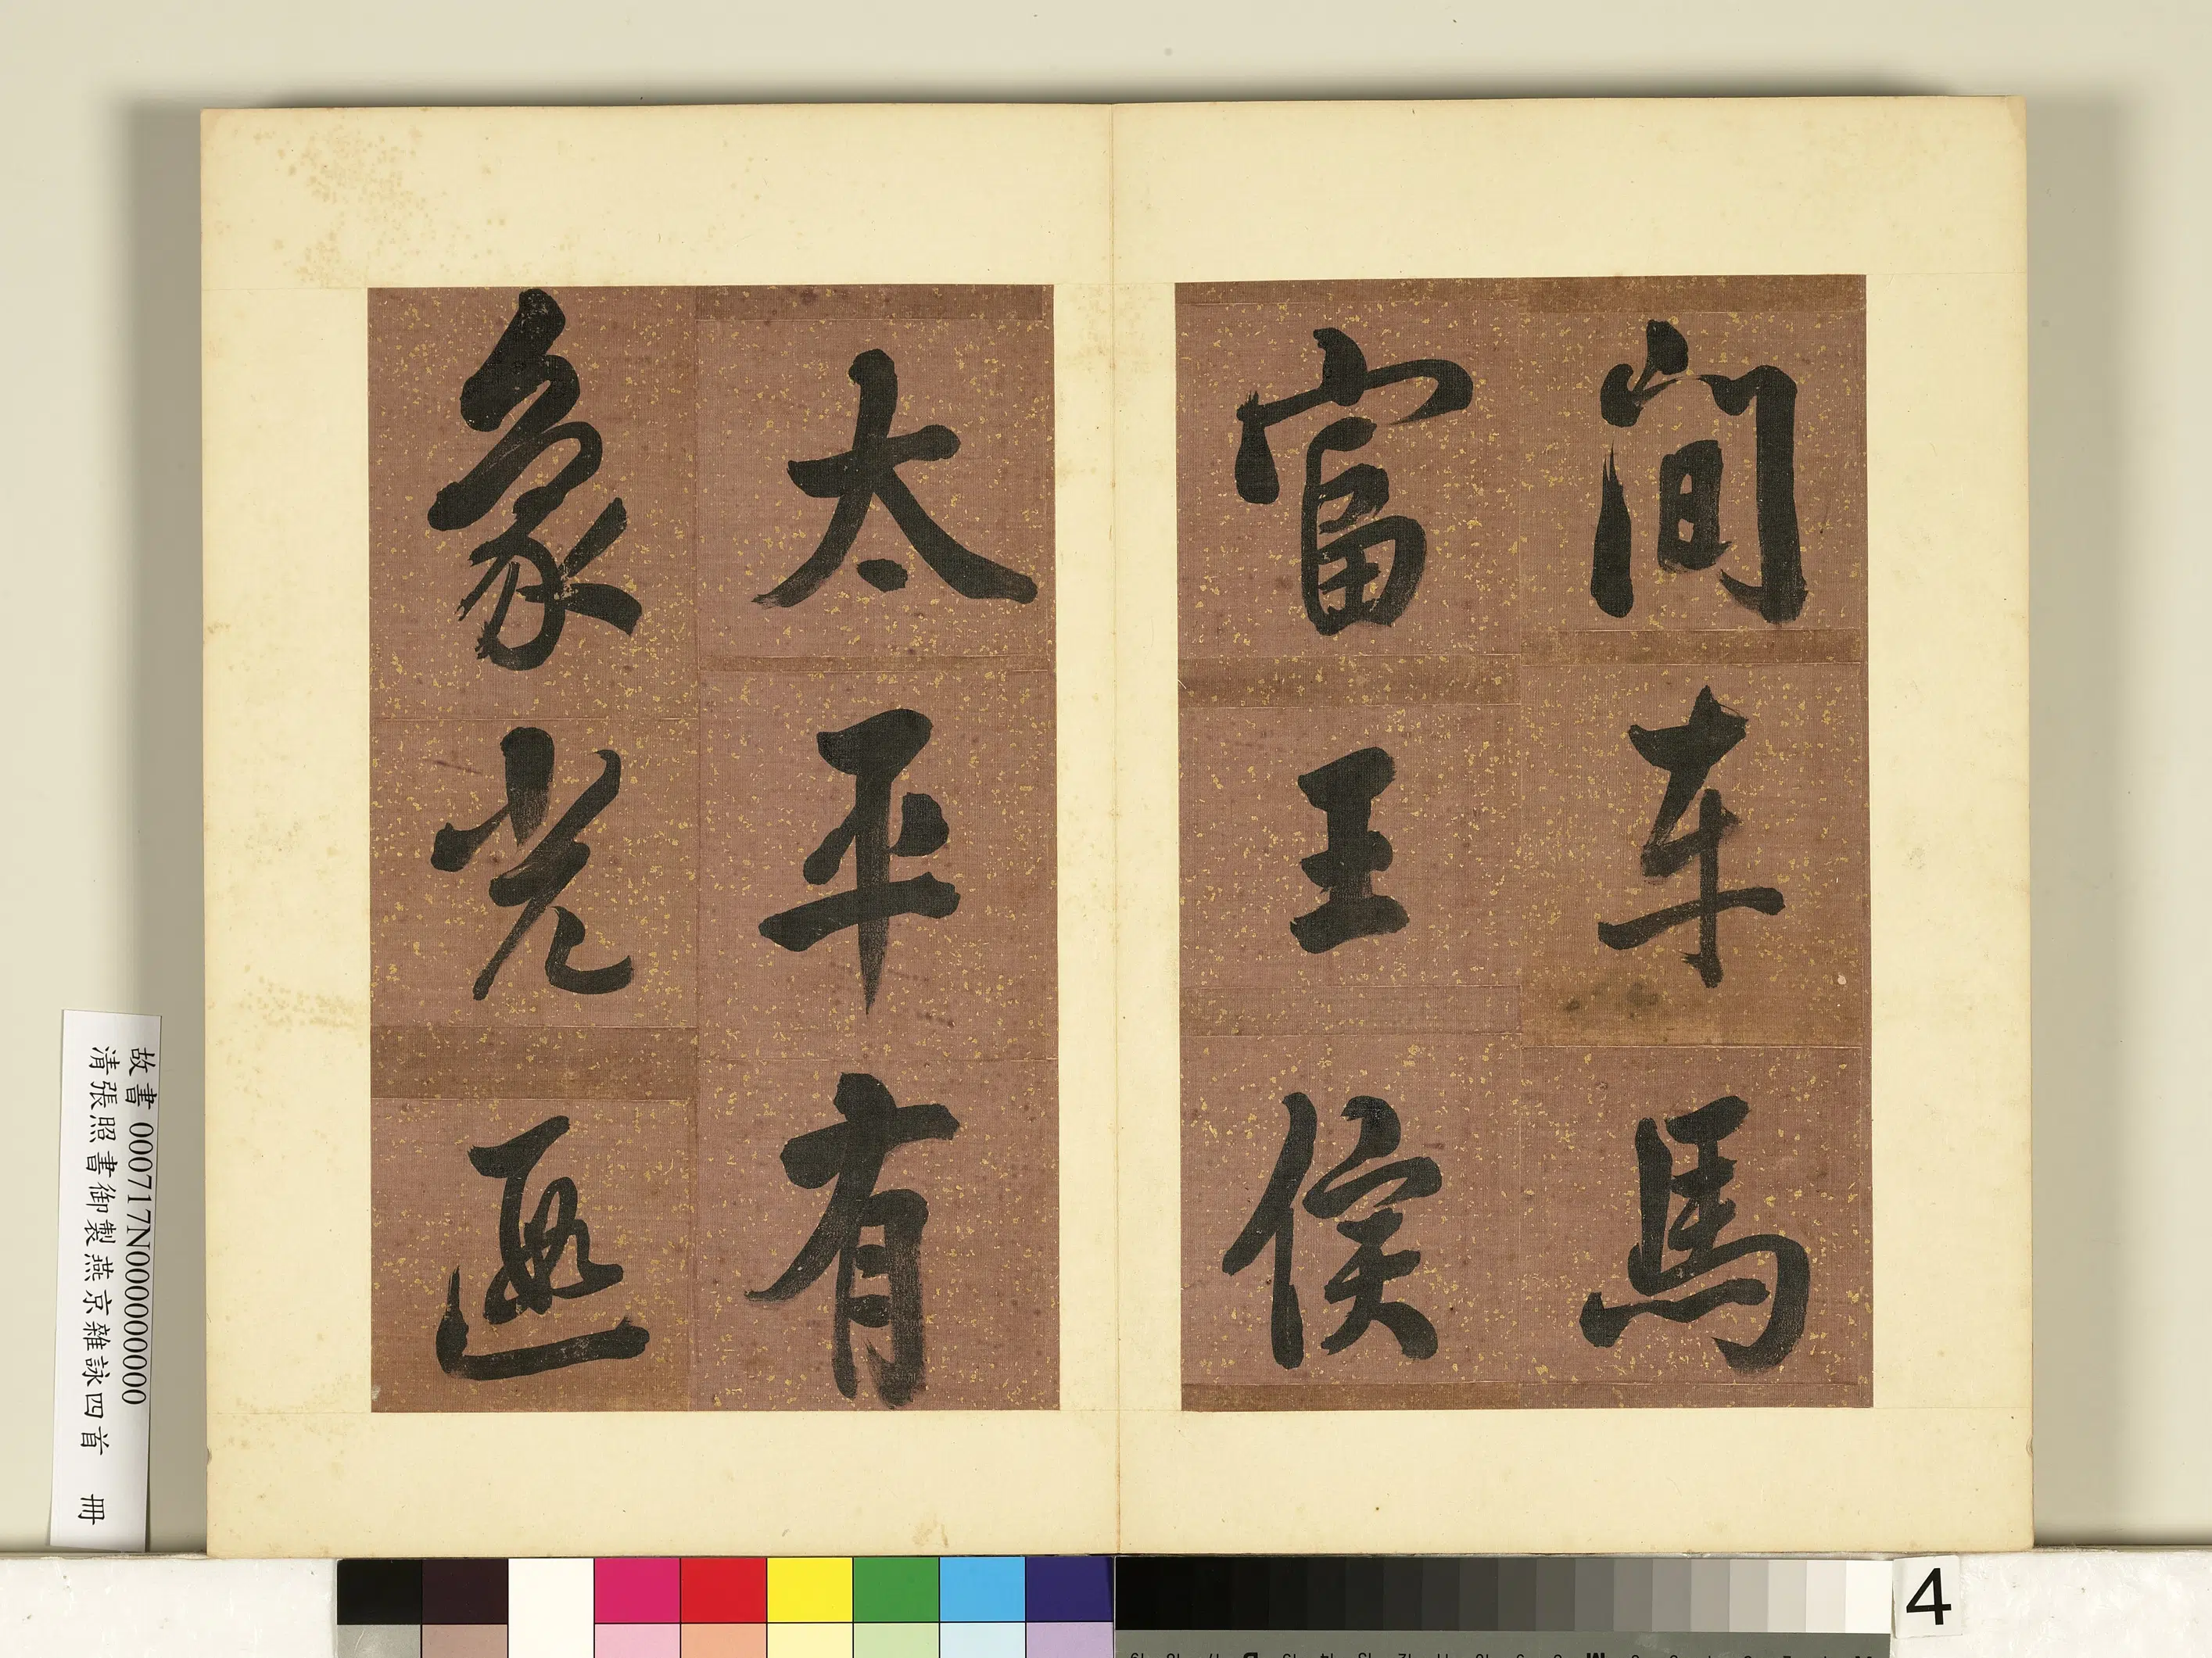 間車馬
富王侯
太平有
象光區
故書 000717N000000000
清張照書御製燕京雜詠四首 冊
4